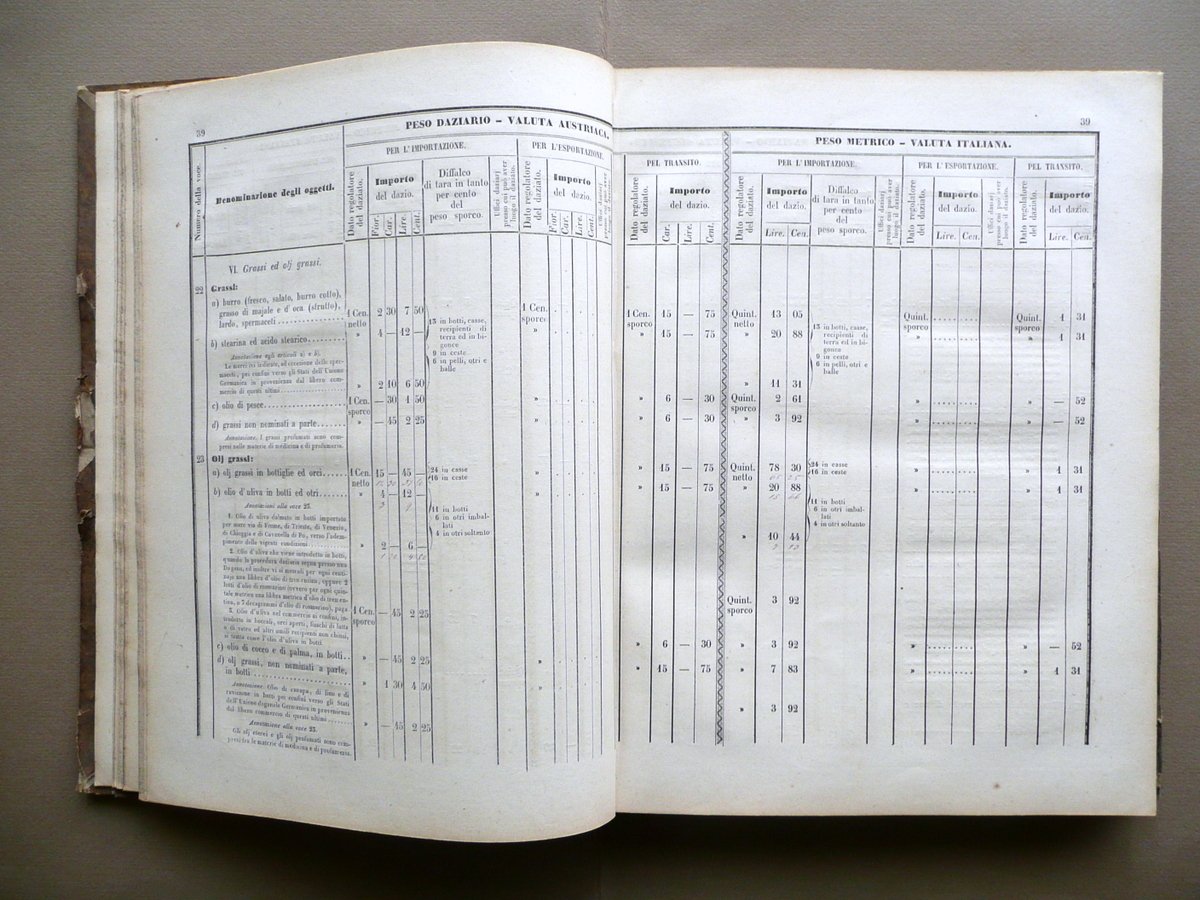 39
PESO DAZIARIO – VALUTA AUSTRIACA.
PER L'IMPORTAZIONE.
PER L'ESPORTAZIONE.
Numero della voce.
Denominazione degli oggetti.
Dato regolatore del daziato.
Importo
del dazio.
Fior.
Car.
Lire.
Cent.
Diffalco
di tara in tanto
per cento
del
peso sporco.
Uffici daziarj
presso cui può aver
luogo il daziato.
Dato regolatore
del daziato.
Importo
del dazio.
Fior.
Car.
Lire.
Cent.
VI. Grassi ed olj grassi.
22 Grassi:
a) burro (fresco, salato, burro cotto),
grasso di majale e d'oca (strutto),
lardo, spermaceti 1 Cen. netto 2 30 7 50 1 Cen. sporco
b) stearina ed acido stearico » 4 — 12 — »
13 in botti, casse,
recipienti di
terra ed in bi-
gonce
9 in ceste
6 in pelli, otri e
balle
Annotazione agli articoli a) e b).
Le merci ivi indicate, ad eccezione dello sper-
maceti, pei confini verso gli Stati dell'Unione
Germanica in provenienza dal libero com-
mercio di questi ultimi » 2 10 6 50
c) olio di pesce 1 Cen. sporco — 30 1 50 »
d) grassi non nominati a parte » — 45 2 25 »
Annotazione. I grassi profumati sono com-
presi nelle materie di medicina e di profumeria.
23 Olj grassi:
a) olj grassi in bottiglie ed orci 1 Cen. netto 15 — 45 — »
24 in casse
16 in ceste
b) olio d'uliva in botti ed otri » 4 — 12 — »
Annotazioni alla voce 23.
11 in botti
6 in otri imbal-
lati
4 in otri soltanto
1. Olio di uliva dalmato in botti importato
per mare via di Fiume, di Trieste, di Venezia,
di Chioggia e di Cavanella di Po, verso l'adem-
pimento delle vigenti condizioni » 2 — 6 —
2. Olio d'uliva che viene introdotto in botti,
quando la procedura daziaria segua presso una
Dogana, ed inoltre vi si mescoli per ogni centi-
najo una libbra d'olio di trementina, oppure 2
lotti d'olio di rosmarino (ovvero per ogni quin-
tale metrico una libbra metrica d'olio di tremen-
tina, o 7 decagrammi d'olio di rosmarino), paga 1 Cen. sporco — 45 2 25
3. Olio d'uliva nel commercio ai confini, in-
trodotto in boccali, orci aperti, fiaschi di latta
o di vetro ed altri simili recipienti non chiusi,
si tratta come l'olio d'uliva in botti.
c) olio di cocco e di palma, in botti » — 45 2 25 »
d) olj grassi, non nominati a parte,
in botti » 1 30 4 50 »
Annotazione. Olio di canapa, di lino e di
ravizzone in botti pei confini verso gli Stati
dell'Unione doganale Germanica in provenienza
dal libero commercio di questi ultimi » — 45 2 25
Annotazione alla voce 23.
Gli olj eterei e gli olj profumati sono com-
presi fra le materie di medicina e di profumeria.
39
PEL TRANSITO.
PESO METRICO – VALUTA ITALIANA.
PER L'IMPORTAZIONE.
PER L'ESPORTAZIONE.
PEL TRANSITO.
Dato regolatore
del daziato.
Importo
del dazio.
Car.
Lire.
Cent.
Dato regolatore
del daziato.
Importo
del dazio.
Lire.
Cen.
Diffalco
di tara in tanto
per cento
del
peso sporco.
Uffici daziarj
presso cui può aver
luogo il daziato.
Dato regolatore
del daziato.
Importo
del dazio.
Lire.
Cen.
Uffici daziarj
presso cui può aver
luogo il daziato.
Dato regolatore
del daziato.
Importo
del dazio.
Lire.
Cen.
1 Cen. sporco 15 — 75 Quint. netto 13 05 Quint. sporco Quint. sporco 1 31
» 15 — 75 » 20 88 » » 1 31
13 in botti, casse,
recipienti di
terra ed in bi-
gonce
9 in ceste
6 in pelli, otri e
balle
» 11 31
» 6 — 30 Quint. sporco 2 61 » » — 52
» 6 — 30 » 3 92 » » — 52
» 15 — 75 Quint. netto 78 30 » » 1 31
24 in casse
16 in ceste
» 15 — 75 » 20 88 » » 1 31
11 in botti
6 in otri imbal-
lati
4 in otri soltanto
» 10 44
Quint. sporco 3 92
» 6 — 30 » 3 92 » » — 52
» 15 — 75 » 7 83 » » 1 31
» 3 92